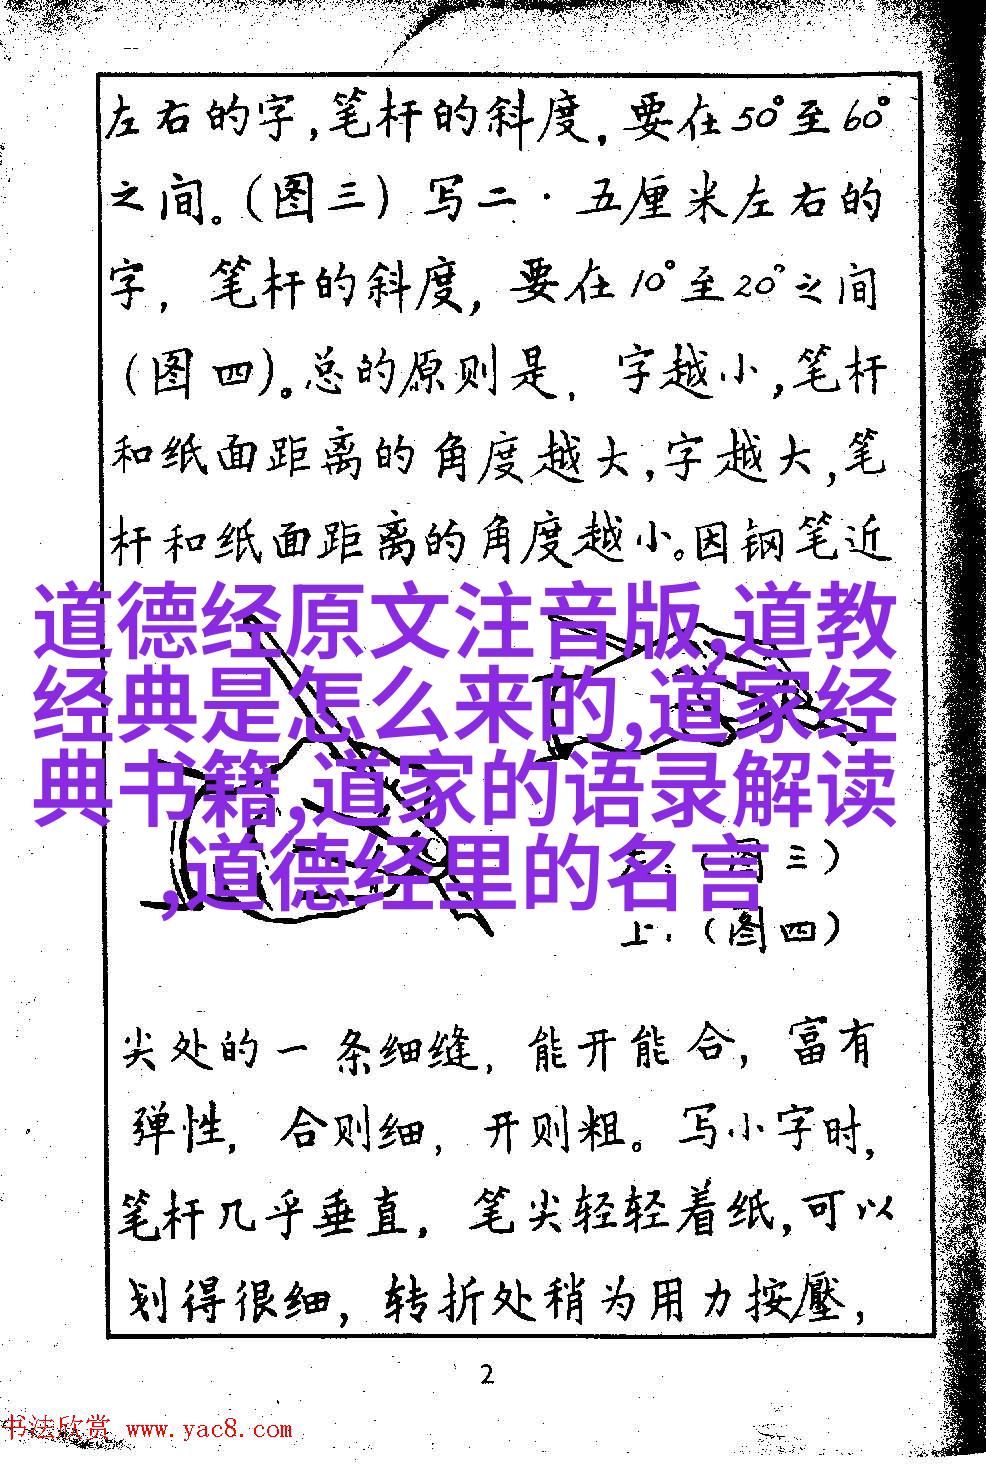 左右的字,笔杆的斜度,要在50°至60°
之间。(图三)写二·五厘米左右的
字,笔杆的斜度,要在10°至20°之间
(图四)。总的原则是,字越小,笔杆
和纸面距离的角度越大,字越大,笔
杆和纸面距离的角度越小。因钢笔近
道德经原文注音版,道教
经典是怎么来的,道家经
典书籍,道家的语录解读
,道德经里的名言
(图三)
上:(图四)
尖处的一条细缝,能开能合,富有
弹性,合则细,开则粗。写小字时,
笔杆几乎垂直,笔尖轻轻着纸,可以
划得很细,转折处稍为用力按壓,
2
书法欣赏 www.yac8.com